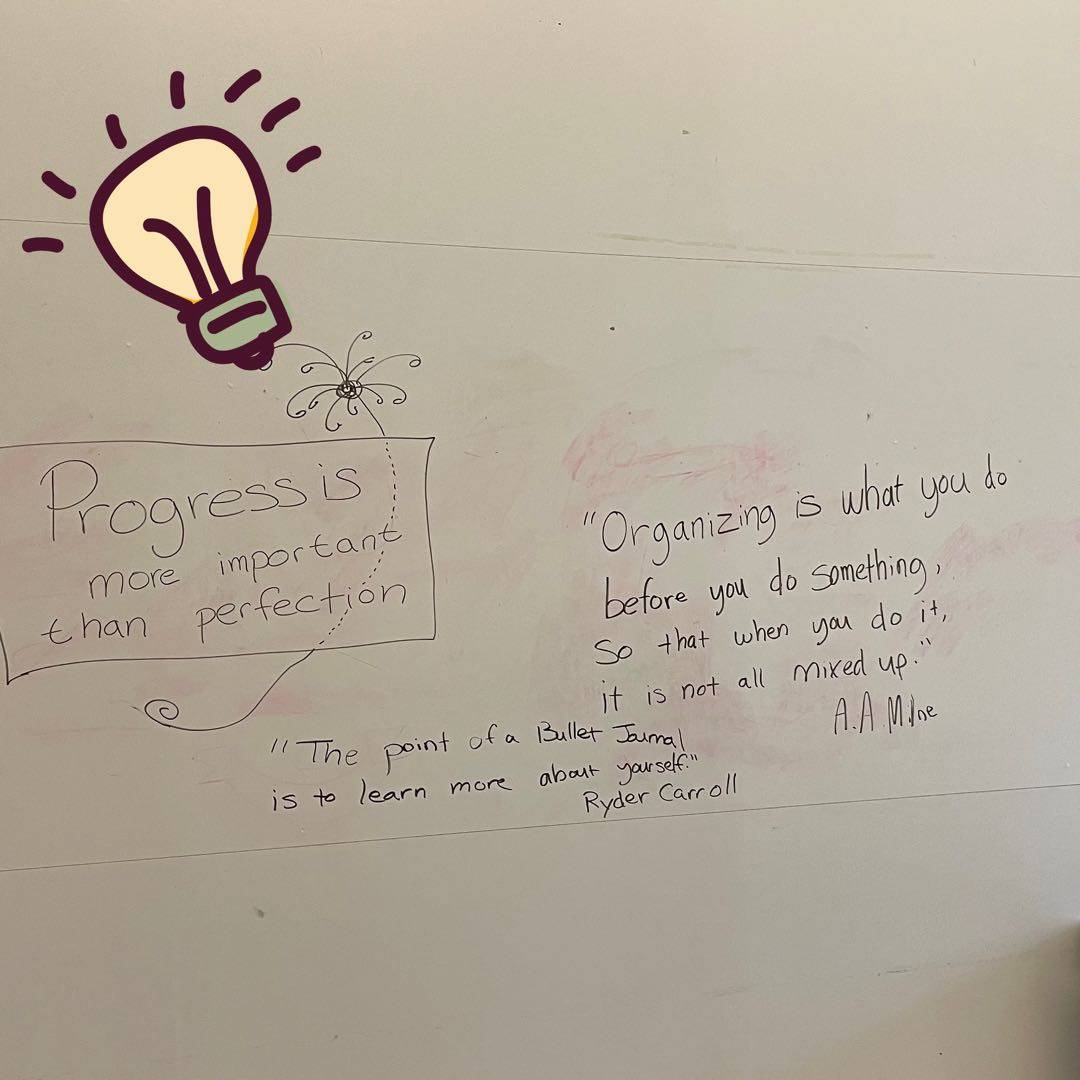 Progress is
more important
than perfection
"Organizing is what you do
before you do something,
so that when you do it,
it is not all mixed up."
A.A. Milne
"The point of a Bullet Journal
is to learn more about yourself."
Ryder Carroll